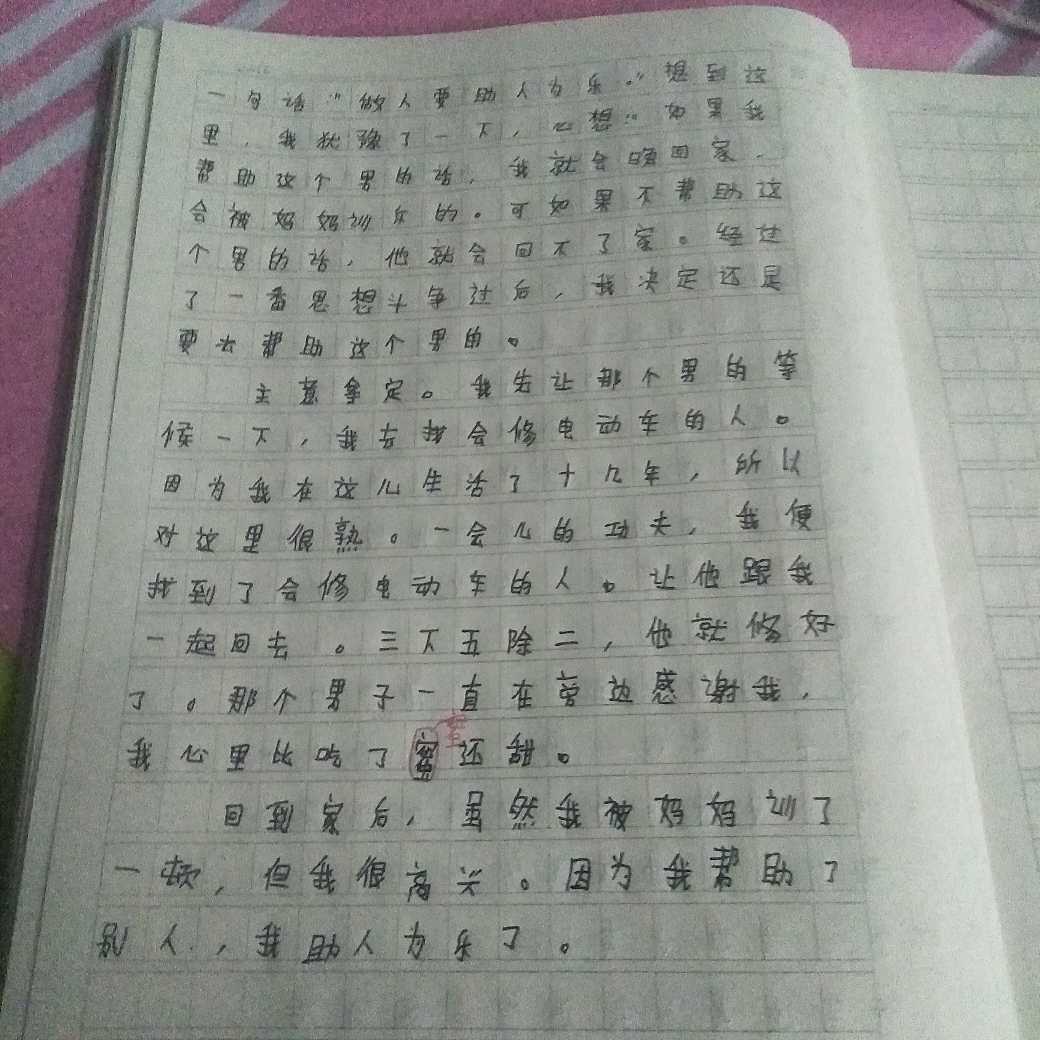 一句话“做人要助人为乐。”想到这
里，我犹豫了一下，心想：“如果我
帮助这个男的话，我就会晚回家，
会被妈妈训斥的。可如果不帮助这
个男的话，他就会回不了家。经过
了一番思想斗争过后，我决定还是
要去帮助这个男的。
主意拿定。我先让那个男的等
候一下，我去找会修电动车的人。
因为我在这儿生活了十几年，所以
对这里很熟。一会儿的功夫，我便
找到了会修电动车的人。让他跟我
一起回去。三下五除二，他就修好
了。那个男子一直在旁边感谢我，
我心里比吃了蜜还甜。
回到家后，虽然我被妈妈训了
一顿，但我很高兴。因为我帮助了
别人，我助人为乐了。